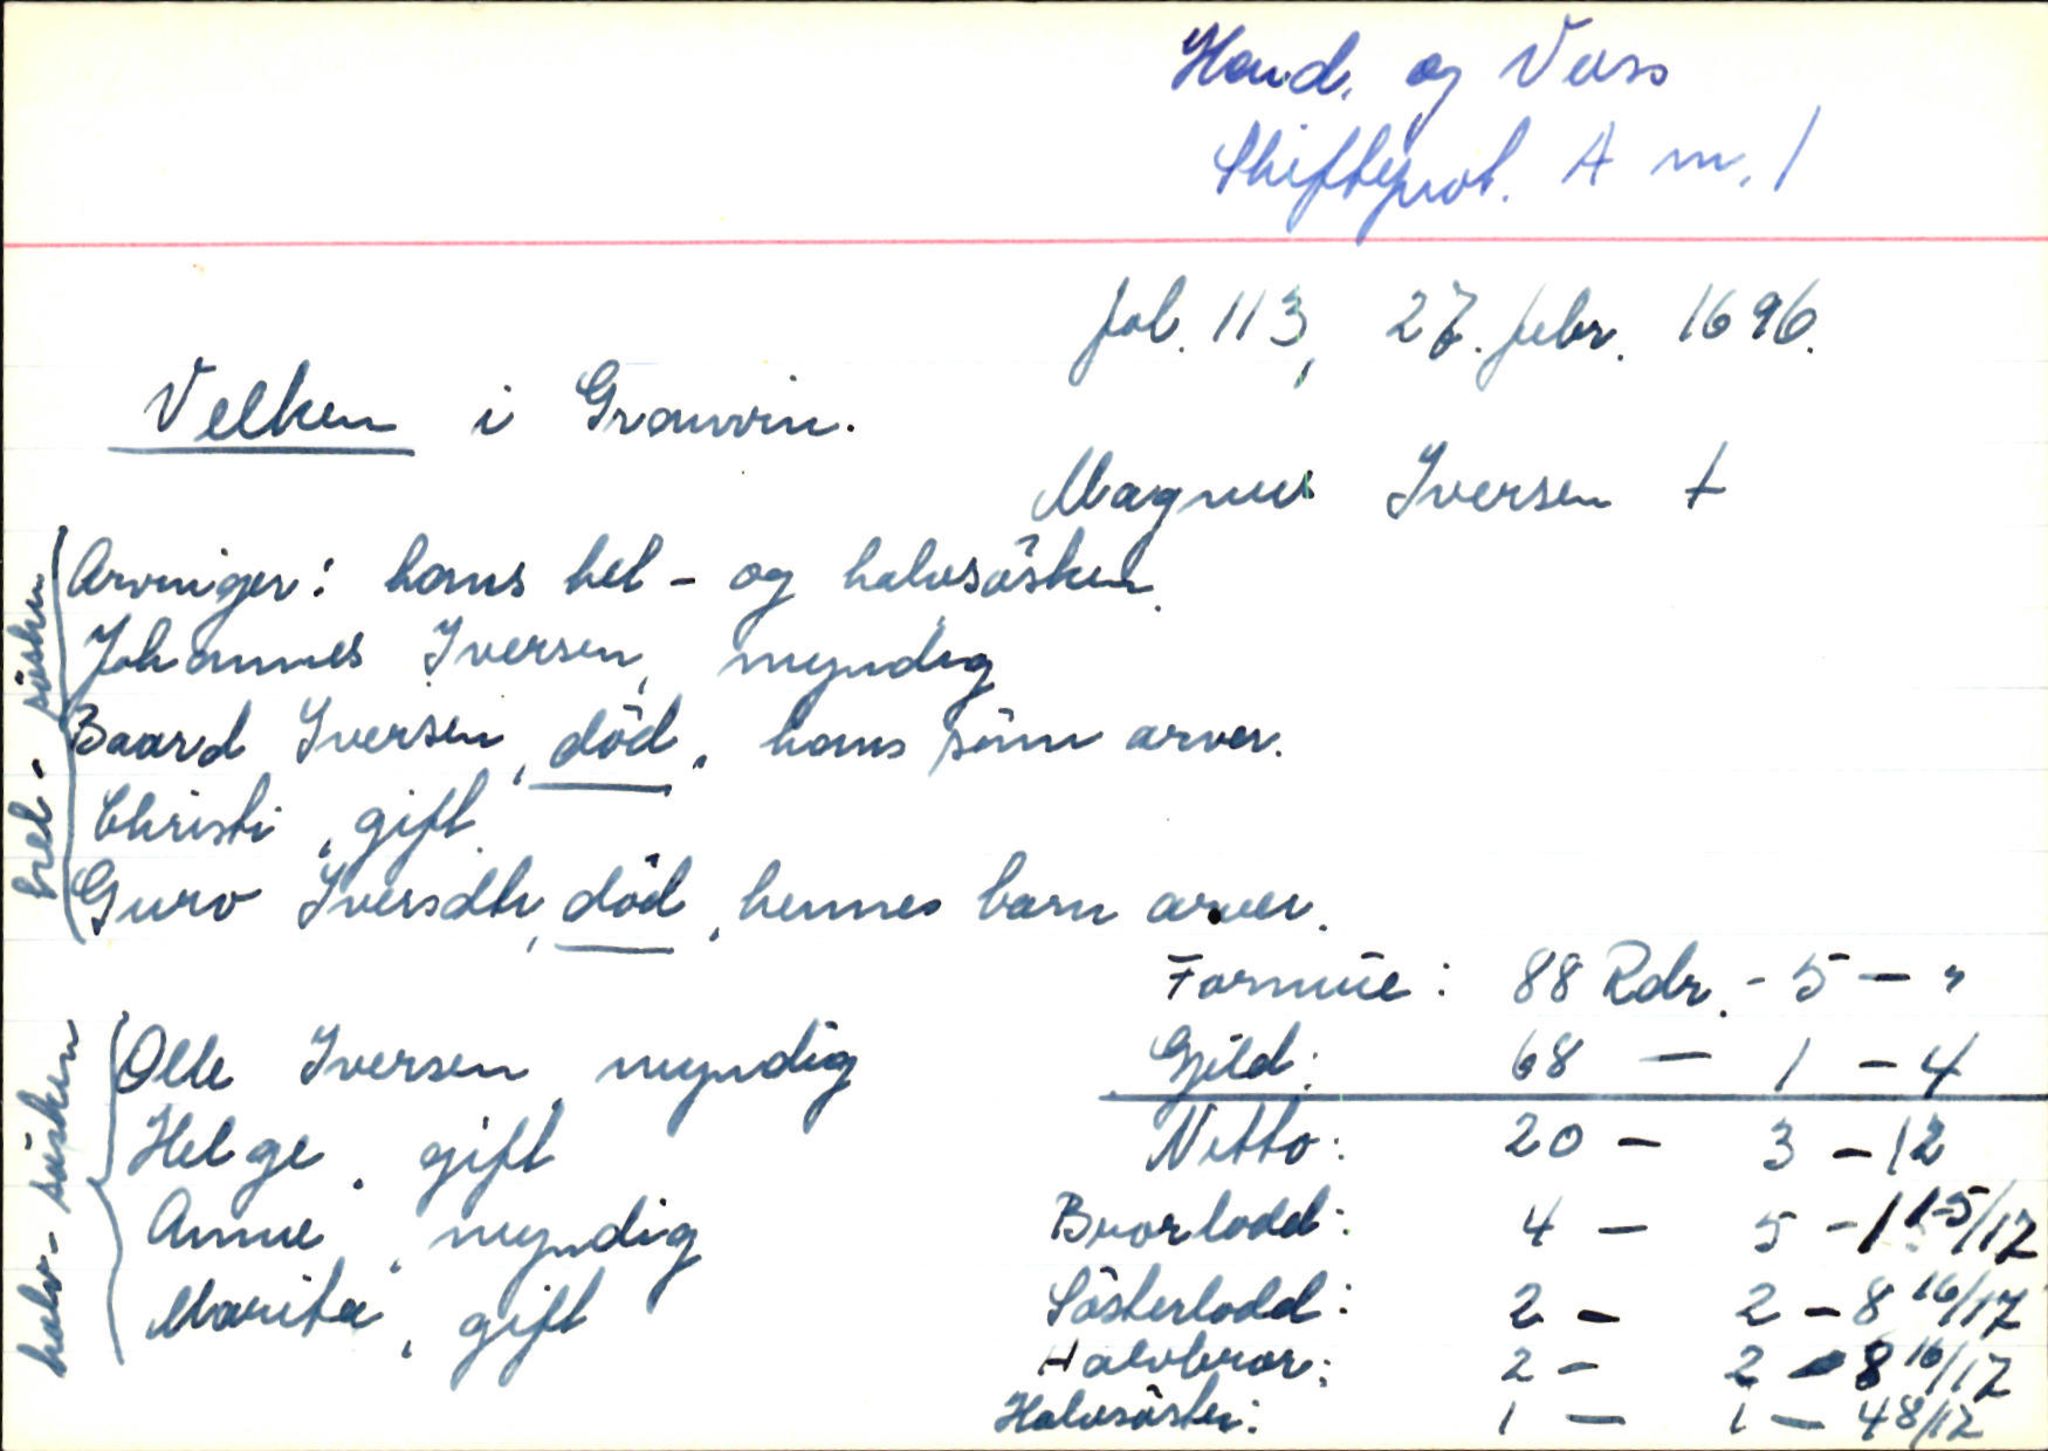 Hard. og Voss
Skifteprot. A nr. 1
fol. 113, 27. febr. 1696.
Velken i Graven.
Magnus Iversen †
Arvinger: hans hel- og halvsösken.
Johannes Iversen, myndig
Baard Iversen, död, hans sönn arver.
Christi, gift.
Guro Iversdtr, död, hennes barn arver.
hel-sösken
Formue: 88 Rdr. - 5 - "
Olle Iversen, myndig
Gjeld: 68 - 1 - 4
Helge, gift
Netto: 20 - 3 - 12
Anne, myndig
Brorlodd: 4 - 5 - 1 15/17
Marita, gift
Sösterlodd: 2 - 2 - 8 16/17
Halvbror: 2 - 2 - 8 16/17
Halvsöster: 1 - 1 - 4 8/17
halv-sösken